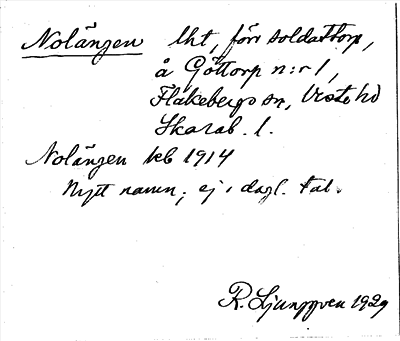 Nolängen lht, förr soldattorp,
å Göttorp n:r 1,
Flakebergs sn, Viste hd
Skarab. l.
Nolängen kb 1914
Nytt namn; ej i dagl. tal.
R. Ljunggren 1929